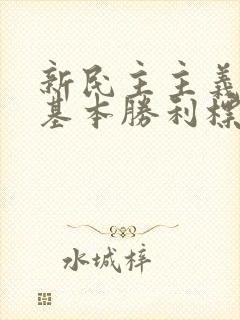 新民主主義
基本勝利標
水城梓